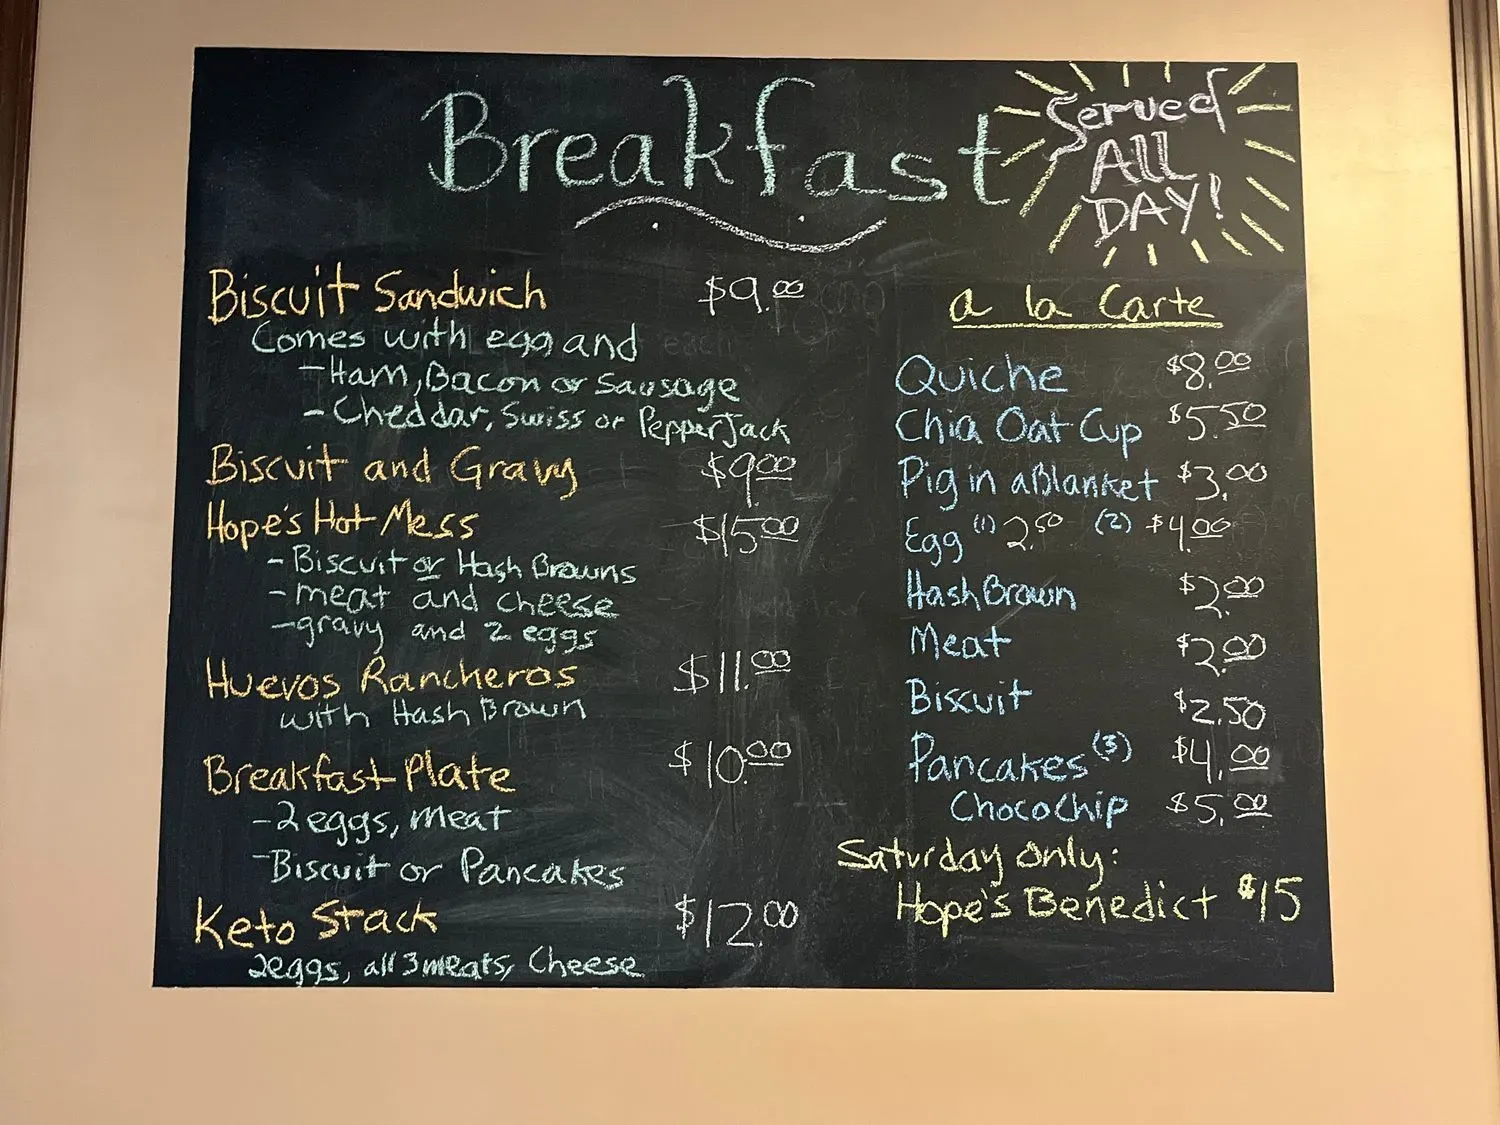 Breakfast
Served
ALL
DAY!
Biscuit Sandwich $9.00
Comes with egg and
- Ham, Bacon or Sausage
- Cheddar, Swiss or PepperJack
Biscuit and Gravy $9.00
Hope's Hot Mess $15.00
- Biscuit or Hash Browns
- meat and cheese
- gravy and 2 eggs
Huevos Rancheros $11.00
with Hash Brown
Breakfast Plate $10.00
- 2 eggs, meat
- Biscuit or Pancakes
Keto Stack $12.00
2eggs, all 3 meats, Cheese
a la Carte
Quiche $8.00
Chia Oat Cup $5.50
Pig in a Blanket $3.00
Egg (1) 2.50 (2) $4.00
Hash Brown $2.00
Meat $2.00
Biscuit $2.50
Pancakes (3) $4.00
Chocochip $5.00
Saturday Only:
Hope's Benedict $15